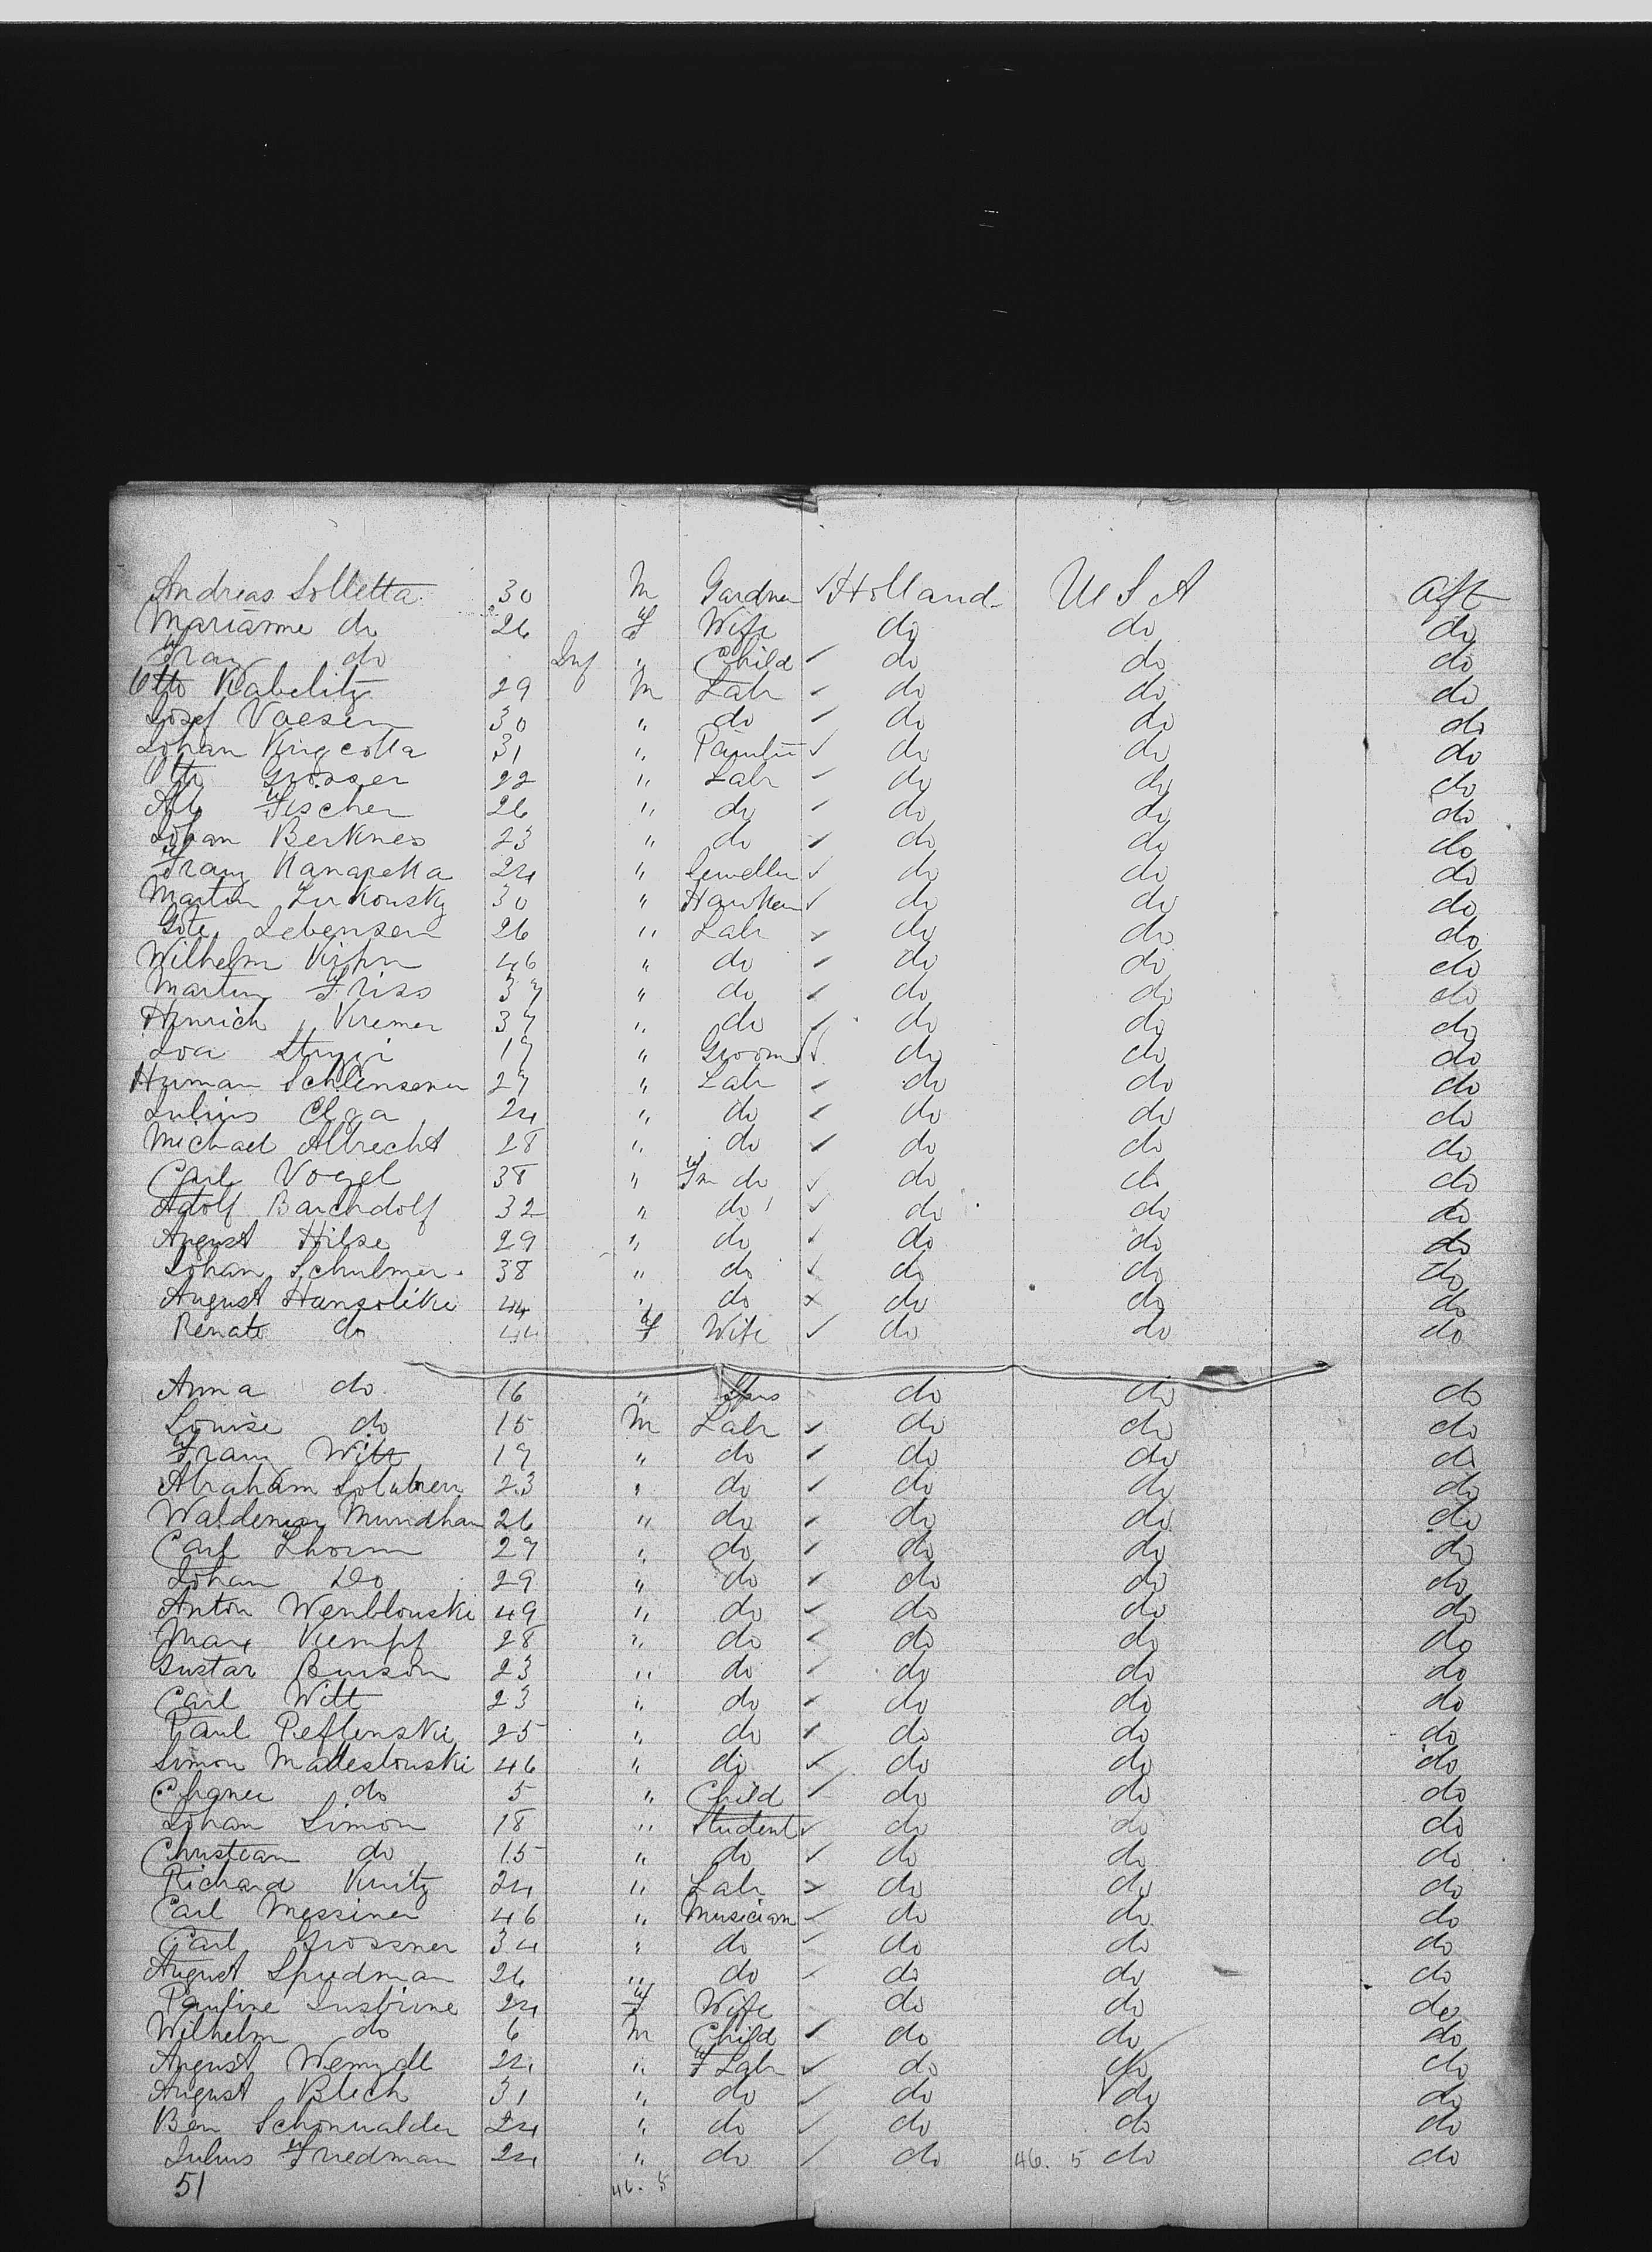 Andreas Solletta 30 M Gardner ✓ Holland U S A Aft
Marianne do 26 F Wife do do do
Franz do Inf " Child ✓ do do do
Otto Kabelitz 29 M Labr ✓ do do do
Josef Vaesen 30 " do ✓ do do do
Johan 31 " Painter ✓ do do do
Otto Grosser 22 " Labr ✓ do do do
Alb Fischer 26 " do ✓ do do do
Johan Berknes 23 " do ✓ do do do
Franz Kanapetta 24 " Jeweller ✓ do do do
Martin Zukousky 30 " Hawker ✓ do do do
Lebensen 26 " Labr ✓ do do do
Wilhelm 46 " do ✓ do do do
Martin Friss 37 " do ✓ do do do
Hinrich Kremer 37 " do ✓ do do do
17 " Groom ✓ do do do
Herman 27 " Labr ✓ do do do
Julius Elga 24 " do ✓ do do do
Michael Albrecht 28 " do ✓ do do do
Carl Vogel 38 " Fm do ✓ do do do
Adolf Barchdolf 32 " do ✓ do do do
August Hilse 29 " do ✓ do do do
Johan Schulmer 38 " do ✓ do do do
August Hansolike 44 " do × do do do
Renate do 44 F Wife ✓ do do do
Anna do 16 " do do do
Louise do 15 M Labr ✓ do do do
Franz Witt 19 " do ✓ do do do
Abraham 23 " do ✓ do do do
Mundhan 26 " do ✓ do do do
Carl Thorm 27 " do ✓ do do do
Johan Do 29 " do ✓ do do do
Anton Wenblouski 49 " do ✓ do do do
Max Kempf 28 " do ✓ do do do
Gustav Burson 23 " do ✓ do do do
Carl Witt 23 " do ✓ do do do
Paul Peflenski 25 " do ✓ do do do
Simon Matteslouski 46 " do ✓ do do do
do 5 " Child ✓ do do do
Johan Simon 18 " Student ✓ do do do
Christian do 15 " do ✓ do do do
Richard 24 " Labr ✓ do do do
Carl Messiner 46 " Musician ✓ do do do
Carl Grossner 34 " do ✓ do do do
August Spudman 26 " do ✓ do do do
Pauline 24 F Wife do do do
Wilhelm do 6 M Child ✓ do do do
August 24 " F Labr ✓ do do do
August Blech 31 " do ✓ do do do
Ben Schonwalder 24 " do ✓ do do do
Julius Friedman 24 " do ✓ do 46. 5 do do
51 46. 5